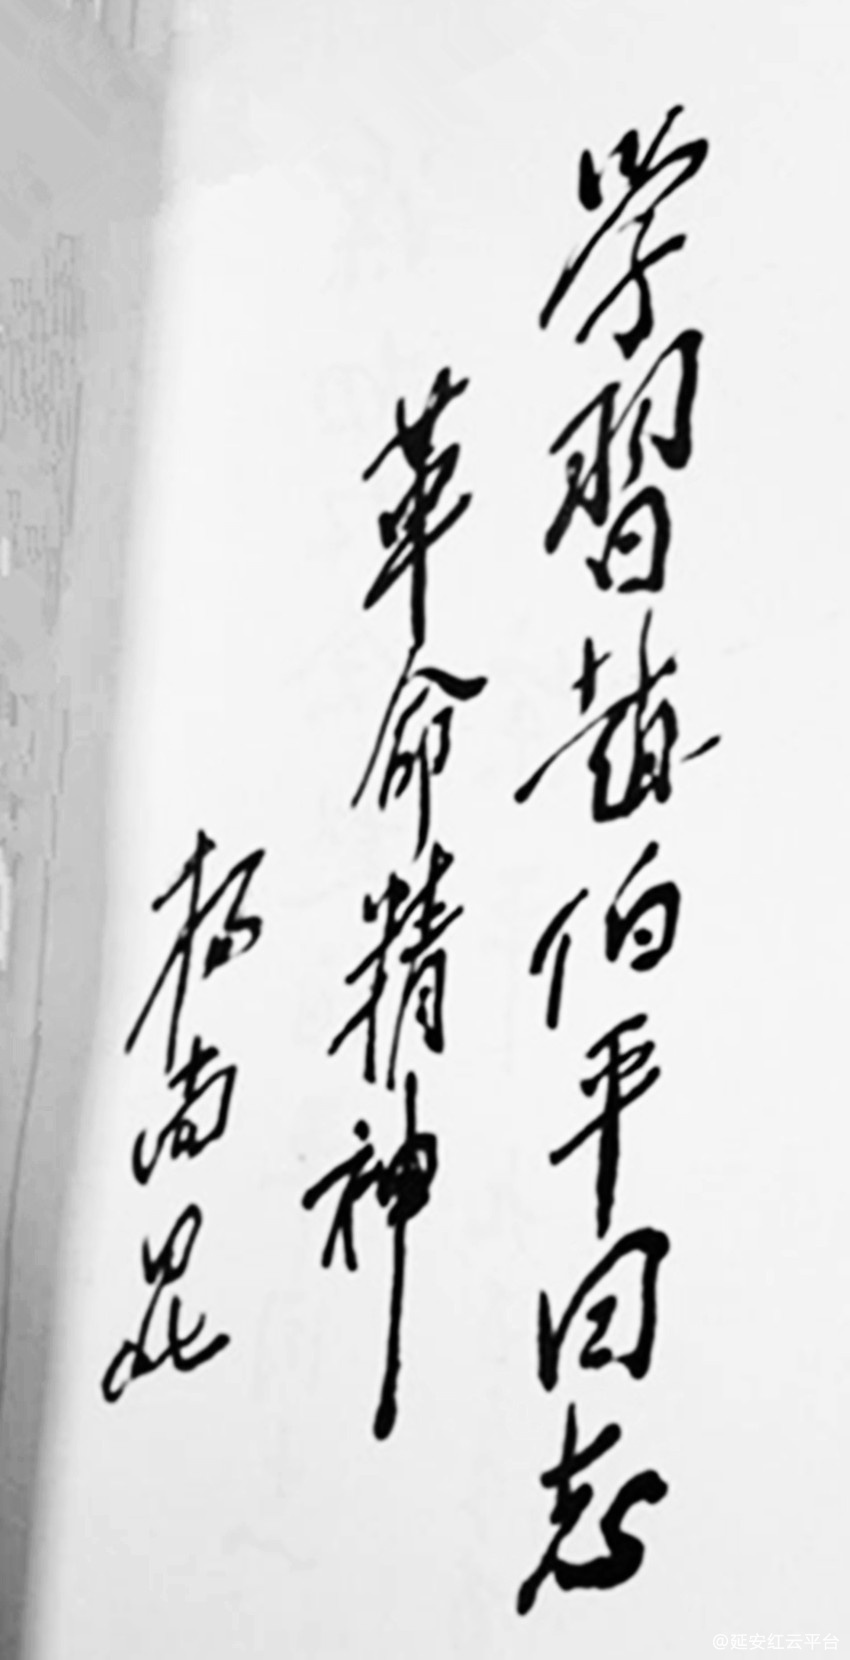 学習趙伯平同志
革命精神
楊尚昆
@延安红云平台